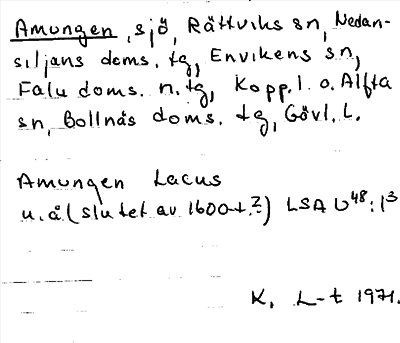 Amungen, sjö, Rättviks sn, Nedan-
siljans doms. tg, Envikens sn,
Falu doms. n. tg, Kopp. l. o. Alfta
sn, Bollnäs doms. tg, Gävl. L.
Amungen Lacus
u. å. (slutet av 1600-t.?) LSA U48:13
K. L-t 1971.